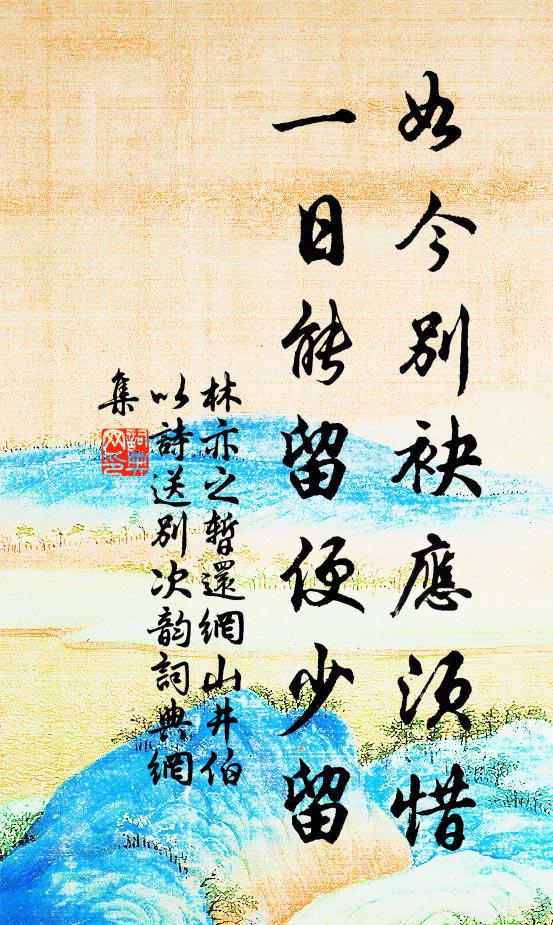 如今別袂應須惜
一日能留便少留
林亦之暫還網山井伯
以詩送別次韵詞典網
集